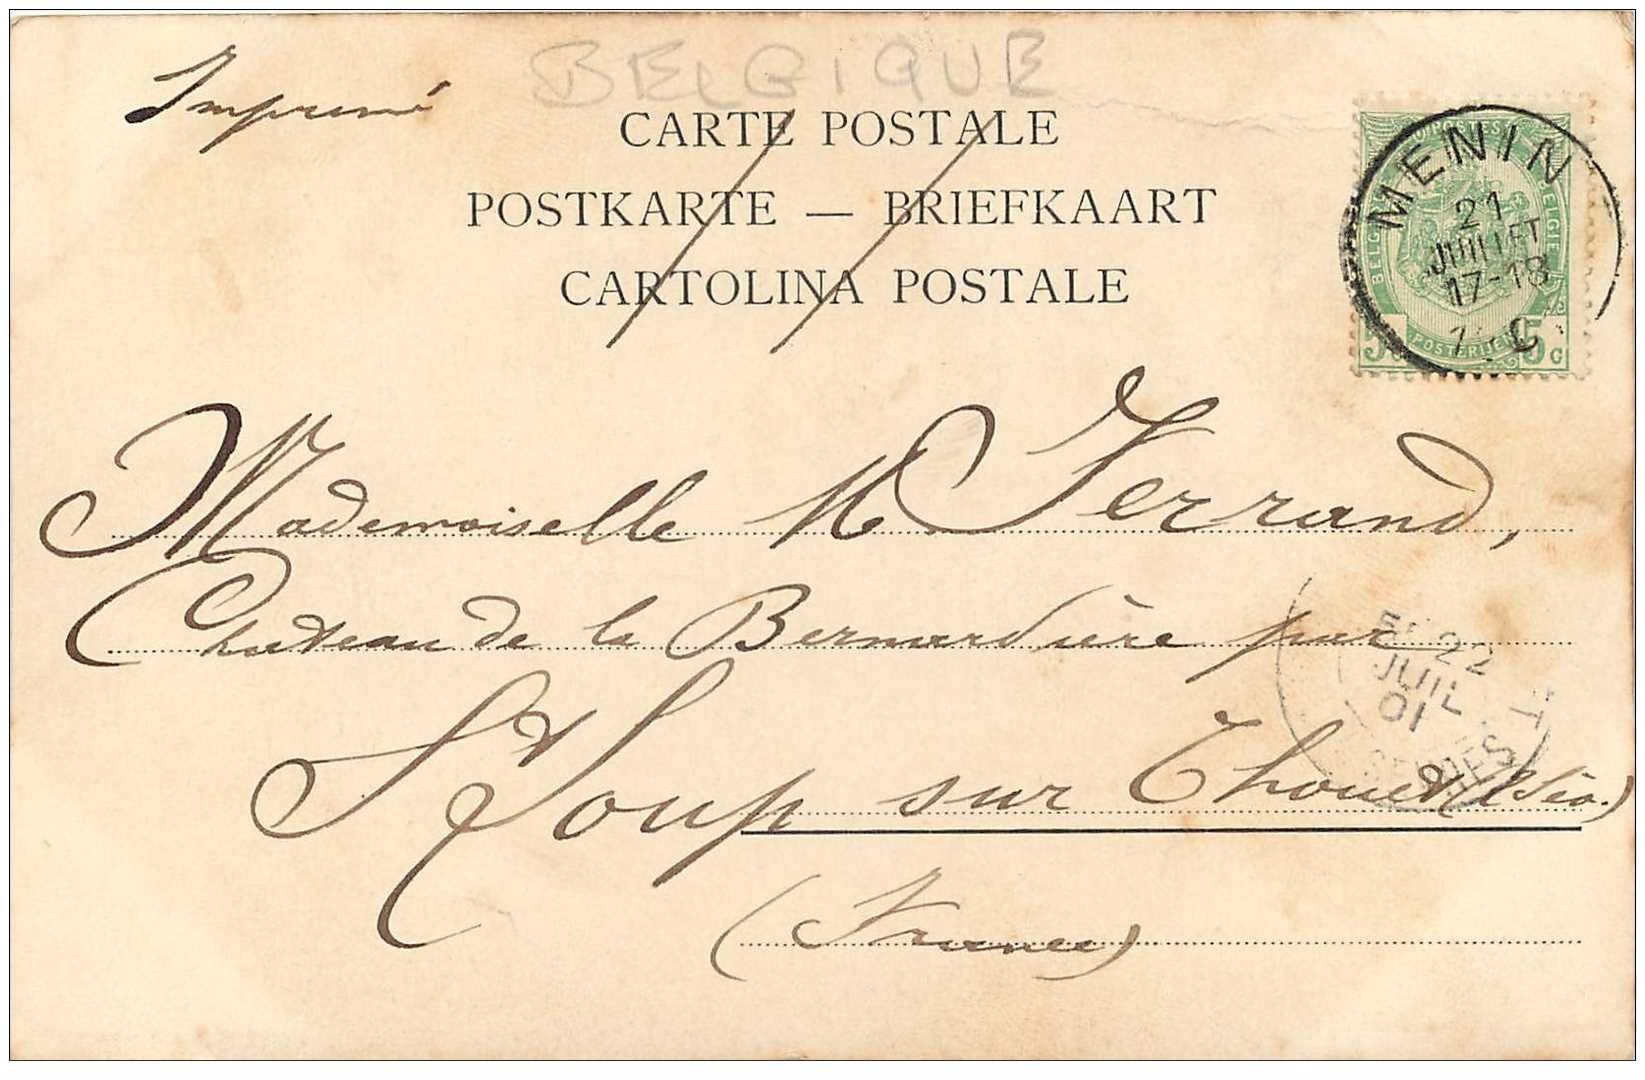 BELGIQUE
Imprimé
CARTE POSTALE
POSTKARTE — BRIEFKAART
CARTOLINA POSTALE
MENIN
21
JUILLET
17-18
BELGIE
POSTERIJEN
5 C
Mademoiselle M Ferrand,
Chateau de la Bernardière par
St Loup sur Thouet
(France)
22
JUIL
01